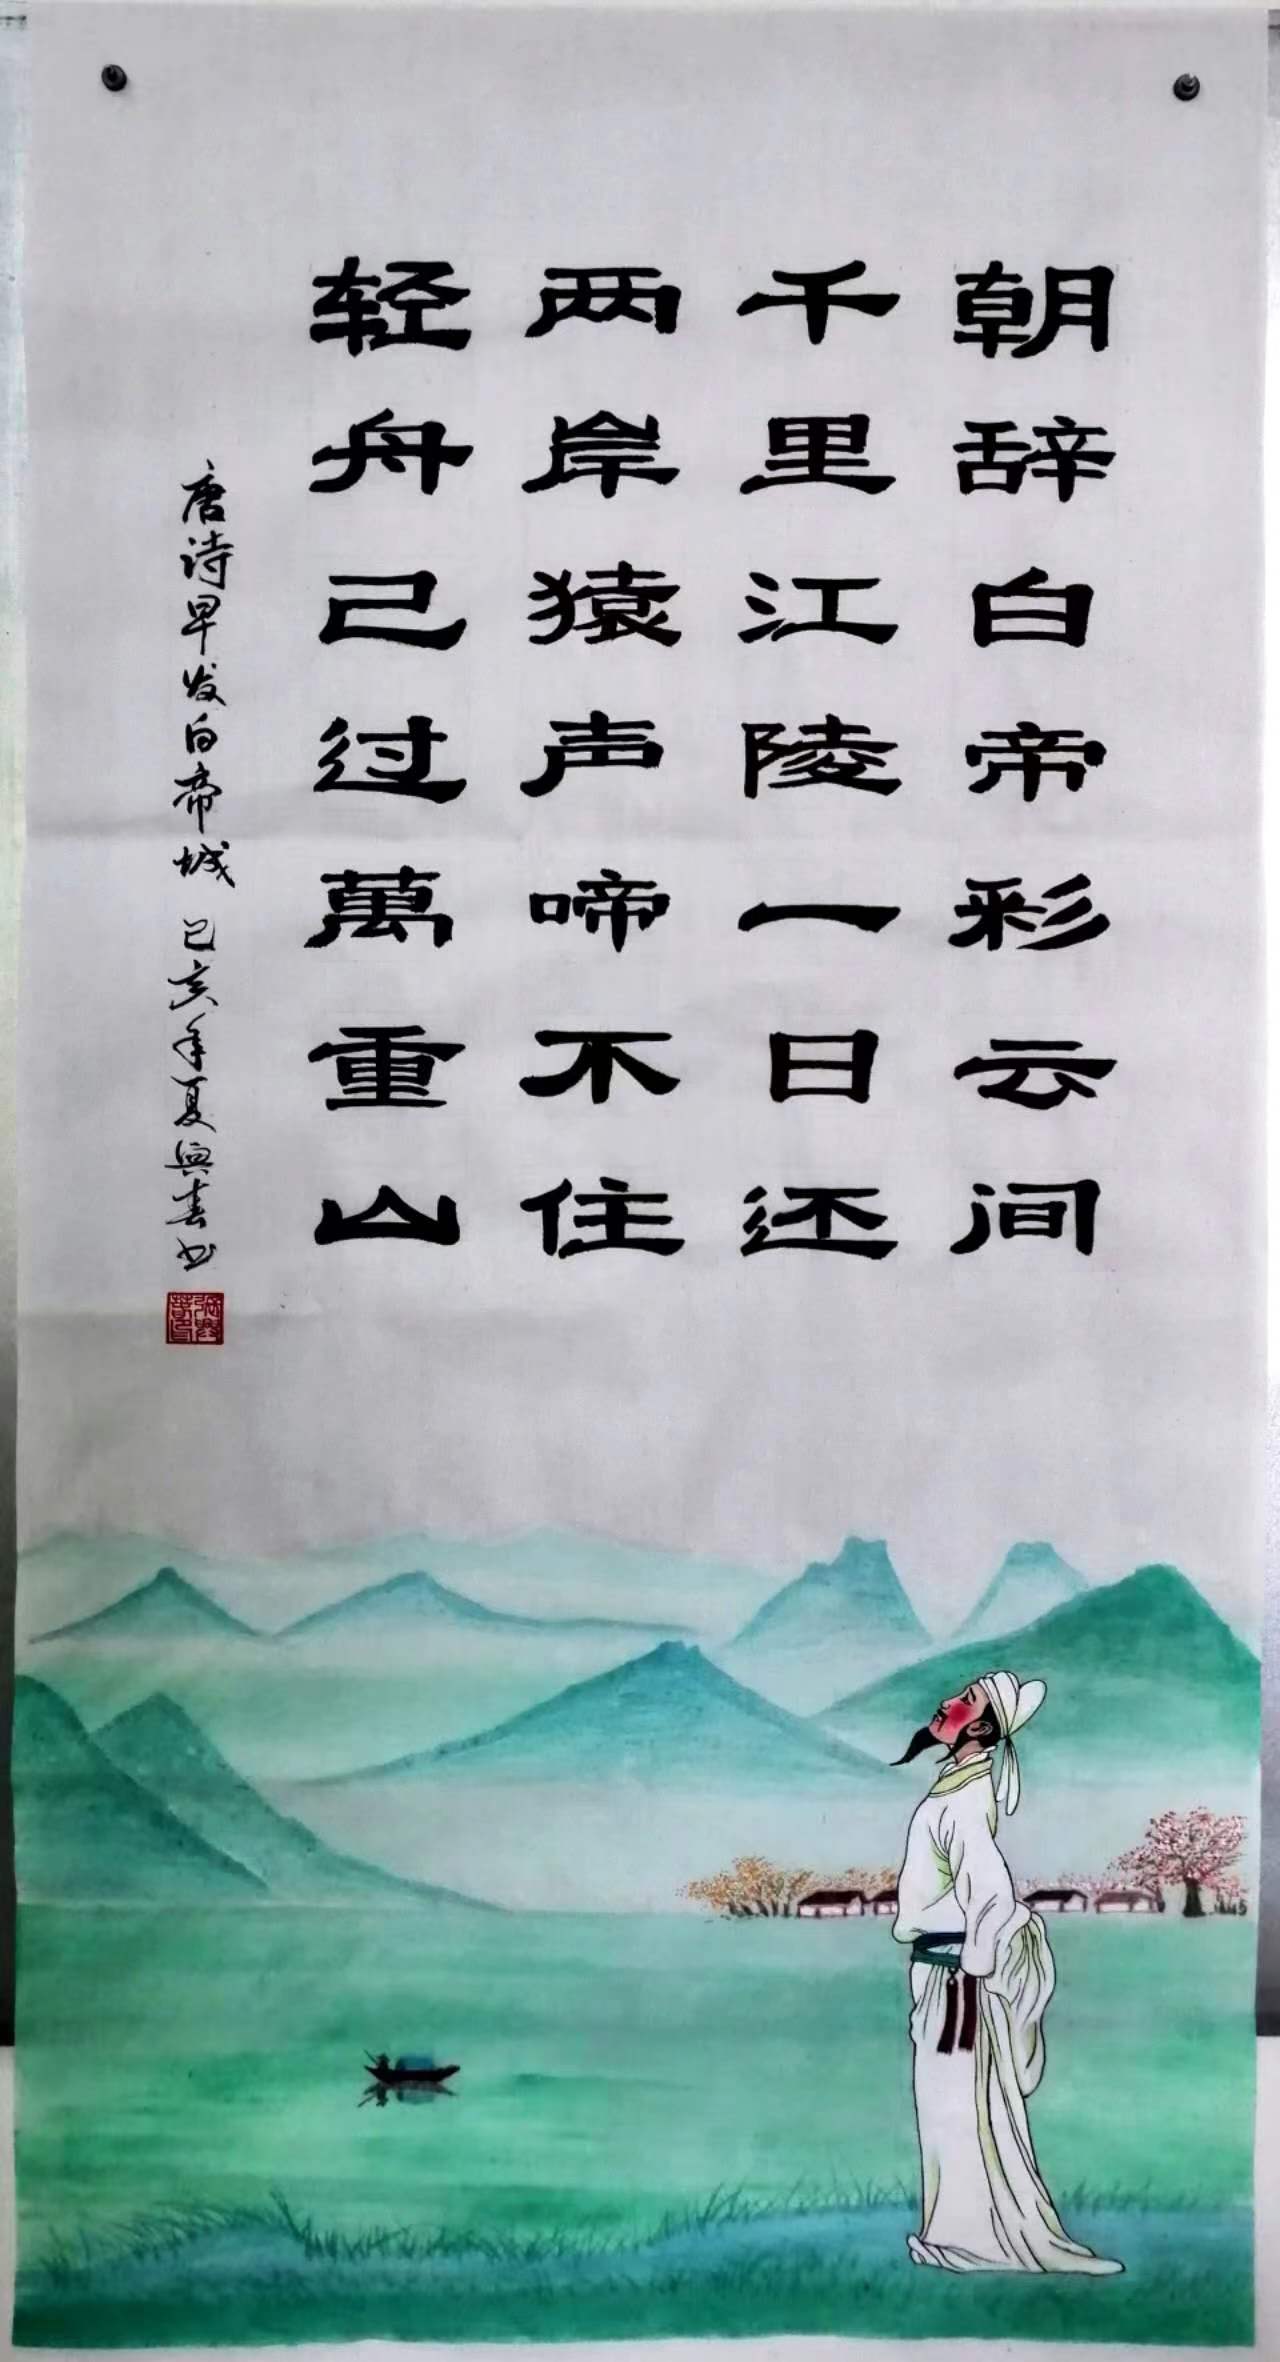 朝辞白帝彩云间
千里江陵一日还
两岸猿声啼不住
轻舟己过萬重山
唐诗早发白帝城 己亥年夏兴春书